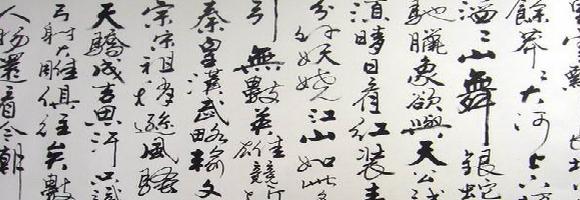 餘莽〻大河上
滔〻山舞銀蛇
馳臘象欲與天公試
須晴日看紅装素
分妖嬈江山如此多
引無數英雄競折
秦皇漢武略輸文
宗宋祖稍遜風騷
天驕成吉思汗只識
弓射大雕俱往矣數
人物還看今朝